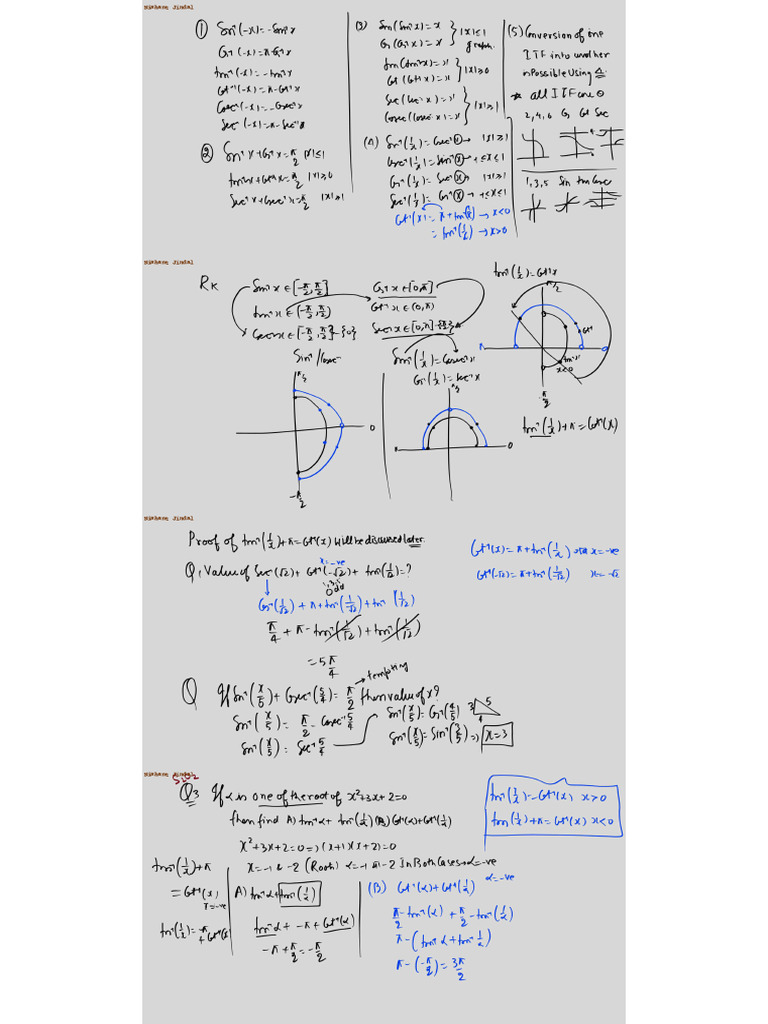 ① Sin⁻¹(-x)=-Sin⁻¹x
Cos⁻¹(-x)=π-Cos⁻¹x
tan⁻¹(-x)=-tan⁻¹x
Cot⁻¹(-x)=π-Cot⁻¹x
Cosec⁻¹(-x)=-Cosec⁻¹x
Sec⁻¹(-x)=π-Sec⁻¹x
② Sin⁻¹x+Cos⁻¹x=π/2 |x|≤1
tan⁻¹x+Cot⁻¹x=π/2 |x|≥0
Sec⁻¹x+Cosec⁻¹x=π/2 |x|≥1
(3) Sin(Sin⁻¹x)=x
Cos(Cos⁻¹x)=x } |x|≤1
graph.
tan(tan⁻¹x)=x
Cot(Cot⁻¹x)=x } |x|≥0
Sec(Sec⁻¹x)=x
Cosec(Cosec⁻¹x)=x } |x|≥1
(4) Sin⁻¹(1/x)=Cosec⁻¹x → |x|≥1
Cosec⁻¹(1/x)=Sin⁻¹x → -1≤x≤1
Cos⁻¹(1/x)=Sec⁻¹x → |x|≥1
Sec⁻¹(1/x)=Cos⁻¹x → -1≤x≤1
Cot⁻¹(x)=π+tan⁻¹(1/x) → x<0
=tan⁻¹(1/x) → x>0
(5) Conversion of one
ITF into another
is Possible Using △.
* all ITF are θ
2,4,6 Cos Cot Sec
1,3,5 Sin tan Cosec
RK
Sin⁻¹x∈[-π/2,π/2]
tan⁻¹x∈(-π/2,π/2)
Cosec⁻¹x∈[-π/2,π/2]-{0}
Cos⁻¹x∈[0,π]
Cot⁻¹x∈(0,π)
Sec⁻¹x∈[0,π]-{π/2}
Sin⁻¹/Cosec⁻¹
π/2
0
-π/2
Sin⁻¹(1/x)=Cosec⁻¹x
Cos⁻¹(1/x)=Sec⁻¹x
π/2
π
0
tan⁻¹(1/x)=Cot⁻¹x
π/2
Cot⁻¹
π
0
tan⁻¹
x<0
-π/2
tan⁻¹(1/x)+π=Cot⁻¹(x)
Proof of tan⁻¹(1/x)+π=Cot⁻¹(x) will be discussed later.
x=-ve
Q1 Value of Sec⁻¹(√2)+Cot⁻¹(-√2)+tan⁻¹(1/√2)=?
1,3,5
Odd
Cos⁻¹(1/√2)+π+tan⁻¹(-1/√2)+tan⁻¹(1/√2)
π/4+π-tan⁻¹(1/√2)+tan⁻¹(1/√2)
=5π/4
Cot⁻¹(x)=π+tan⁻¹(1/x) x=-ve
Cot⁻¹(-√2)=π+tan⁻¹(1/-√2) x=-√2
tempting
Q If Sin⁻¹(x/5)+Cosec⁻¹(5/4)=π/2 then value of x?
Sin⁻¹(x/5)=π/2-Cosec⁻¹5/4
Sin⁻¹(x/5)=Sec⁻¹5/4
Sin⁻¹(x/5)=Cos⁻¹(4/5)
3 5
4
Sin⁻¹(x/5)=Sin⁻¹(3/5)⇒ x=3
Q3 If α is one of the root of x²+3x+2=0
then find A) tan⁻¹α+tan⁻¹(1/α) (B) Cot⁻¹(α)+Cot⁻¹(1/α)
x²+3x+2=0⇒(x+1)(x+2)=0
x=-1 & -2 (Roots) α=-1 -2 In Both Cases→α=-ve
tan⁻¹(1/x)=Cot⁻¹(x) x>0
tan⁻¹(1/x)+π=Cot⁻¹(x) x<0
tan⁻¹(1/x)+π
=Cot⁻¹(x)
x=-ve
tan⁻¹(1/x)=-π
+Cot⁻¹(x)
A) tan⁻¹α+tan⁻¹(1/α)
tan⁻¹α+-π+Cot⁻¹(α)
-π+π/2=-π/2
(B) Cot⁻¹(α)+Cot⁻¹(1/α) α=-ve
π/2-tan⁻¹(α)+π/2-tan⁻¹(1/α)
π-(tan⁻¹α+tan⁻¹1/α)
π-(-π/2)=3π/2